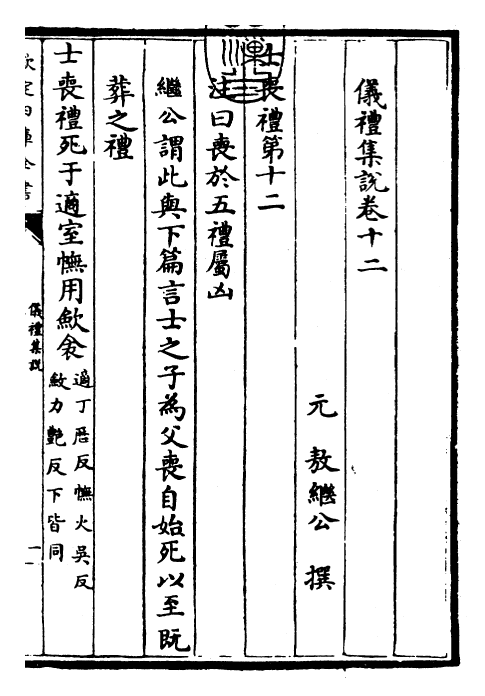 儀禮集説卷十二
元 敖繼公 撰
士喪禮第十二
注曰喪於五禮屬凶
繼公謂此與下篇言士之子為父喪自始死以至既
葬之禮
士喪禮死于適室幠用斂衾適丁厯反幠火吳反
斂力艷反下皆同
欽定四庫全書
儀禮集説
一